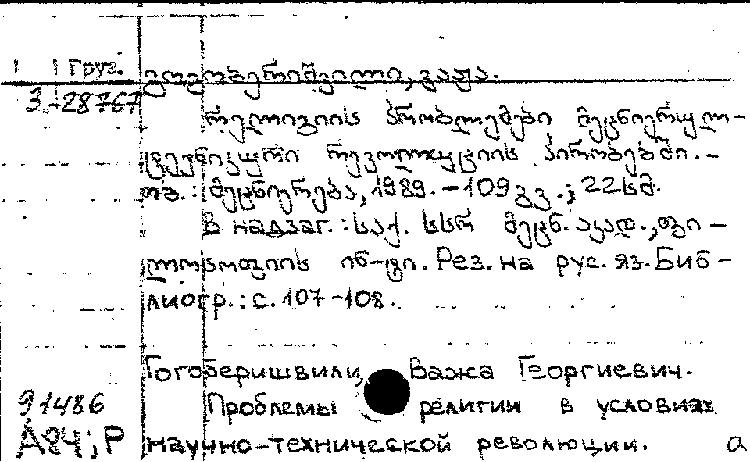 Груз. გოგობერიშვილი, ვაჟა.
3-28767
რელიგიის პრობლემები მეცნიერულ-
ტექნიკური რევოლუციის პირობებში. -
თბ. : მეცნიერება, 1989. - 109 გვ. ; 22 სმ.
В надзаг. : საქ. სსრ მეცნ. აკად., ფი-
ლოსოფიის ინ-ტი. Рез. на рус. яз. Биб-
лиогр. : с. 107-108.
Гогоберишвили, Важа Георгиевич.
91486 Проблемы религии в условиях
А84; Р научно-технической революции. а